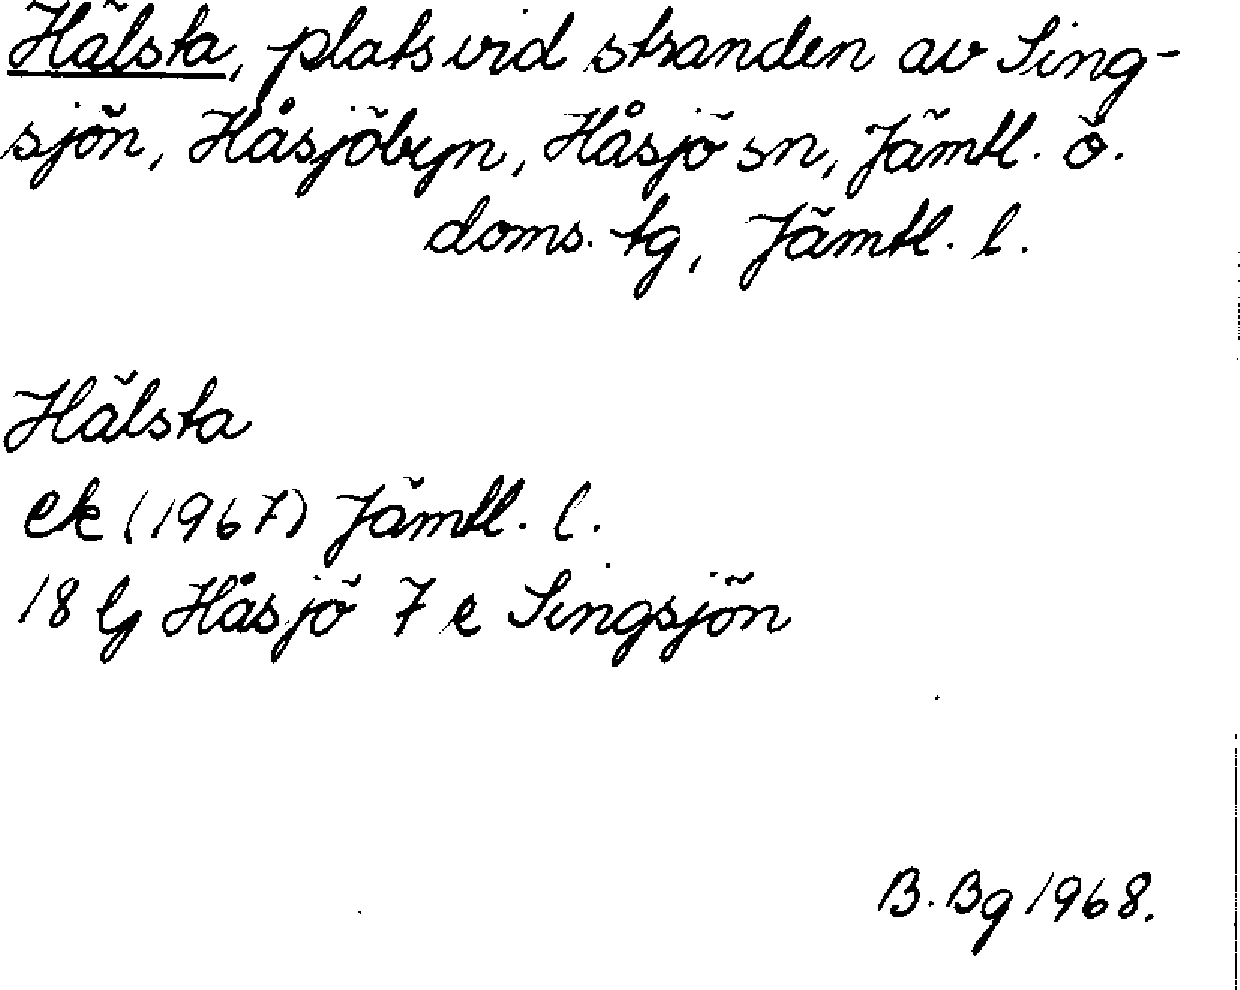 Hälsta, plats vid stranden av Sing-
sjön, Håsjöbyn, Håsjö sn, Jämtl. ö.
doms. tg, Jämtl. l.
Hälsta
ek (1967) Jämtl. l.
18 G Håsjö 7 e Singsjön
B. Bg 1968.